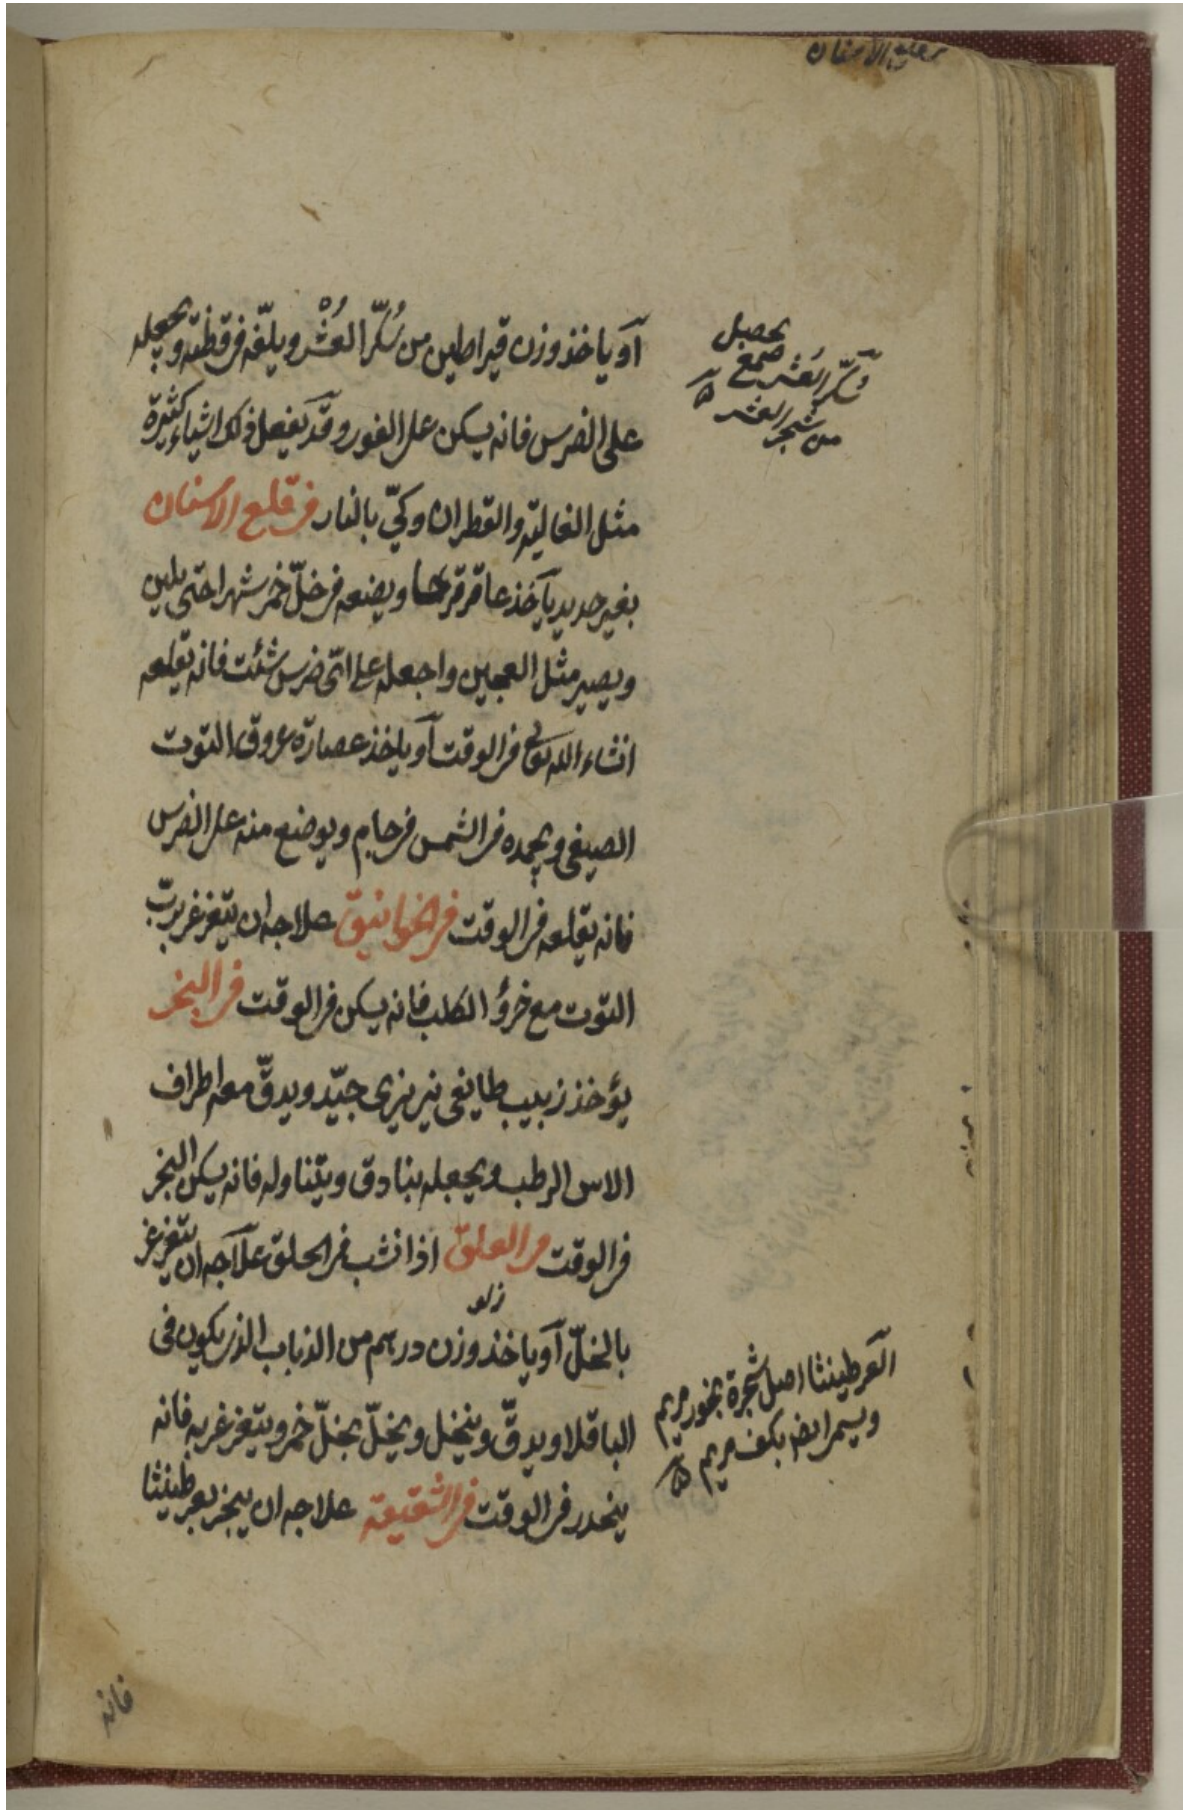 الاسنان
أو ياخذ وزن قيراطين من سُكّر العُشْر ويلفّه فى قطنة ويجعله
على الضرس فانه يسكن على الفور وقد يفعل ذلك اشياء كثيرة
مثل الغالية والقطران وكىّ بالنار فى قلع الاسنان
بغير حديد يأخذ عاقرقرحا ويضعه فى خلّ خمر شهرا حتى يلين
ويصير مثل العجين واجعله على اىّ ضرس شئت فانه يقلعه
انشاء الله تعالى فى الوقت أو ياخذ عصارة عروق التوت
الصيفى ويجمده فى الشمس فى جام ويوضع منه على الضرس
فانه يقلعه فى الوقت فى الخوانيق علاجه ان يتغرغر بربّ
التوت مع خرؤ الكلب فانه يسكن فى الوقت فى البخر
يؤخذ زبيب طايفى جيّد ويدقّ معه اطراف
الاس الرطب ويجعله بنادق ويتناوله فانه يسكن البخر
فى الوقت فى العلق اذا نشب فى الحلق علاجه ان يتغرغر
زلو
بالخلّ أو ياخذ وزن درهم من الذباب الذى يكون فى
الباقلا ويدقّ وينخل ويخلّ بخلّ خمر ويتغرغر به فانه
ينحدر فى الوقت فى الشقيقة علاجه ان يبخر بعرطنيثا
يحصل
وسكّر العُشر صمغ
من شجر العشر
العرطنيثا اصل شجرة بخور مريم
ويسمى ايضا بكف مريم
فانه